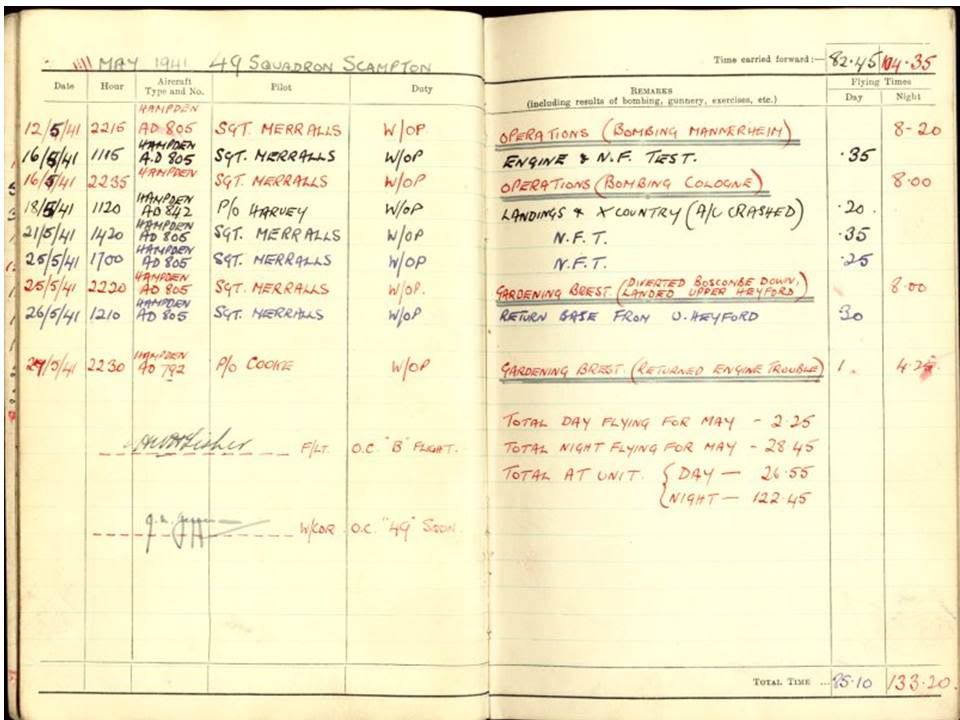 MAY 1941 49 SQUADRON SCAMPTON Time carried forward:— 82.45 104.35
Date Hour Aircraft Type and No. Pilot Duty REMARKS (including results of bombing, gunnery, exercises, etc.) Flying Times Day Night
12/5/41 2215 HAMPDEN AD 805 SGT. MERRALLS W/OP. OPERATIONS (BOMBING MANNERHEIM) 8-20
16/5/41 1115 HAMPDEN A.D 805 SGT. MERRALLS W/OP ENGINE & N.F. TEST. .35
16/5/41 2235 HAMPDEN SGT. MERRALLS W/OP OPERATIONS (BOMBING COLOGNE) 8.00
18/5/41 1120 HAMPDEN AD 842 P/O HARVEY W/OP LANDINGS & X COUNTRY (A/C CRASHED) .20.
21/5/41 1420 HAMPDEN AD 805 SGT. MERRALLS W/OP N.F.T. .35
25/5/41 1700 HAMPDEN AD 805 SGT. MERRALLS W/OP N.F.T. .25
25/5/41 2220 HAMPDEN AD 805 SGT. MERRALLS W/OP. GARDENING BREST. (DIVERTED BOSCOMBE DOWN, LANDED UPPER HEYFORD) 8.00
26/5/41 1210 HAMPDEN AD 805 SGT. MERRALLS W/OP RETURN BASE FROM U. HEYFORD 30
29/5/41 2230 HAMPDEN AD 792 P/O COOKE W/OP GARDENING BREST. (RETURNED ENGINE TROUBLE) 1. 4.25
TOTAL DAY FLYING FOR MAY - 2.25
F/LT. O.C. "B" FLIGHT. TOTAL NIGHT FLYING FOR MAY - 28.45
TOTAL AT UNIT. { DAY — 26.55
NIGHT — 122.45
W/CDR O.C. "49" SQDN.
TOTAL TIME ... 85.10 133.20.